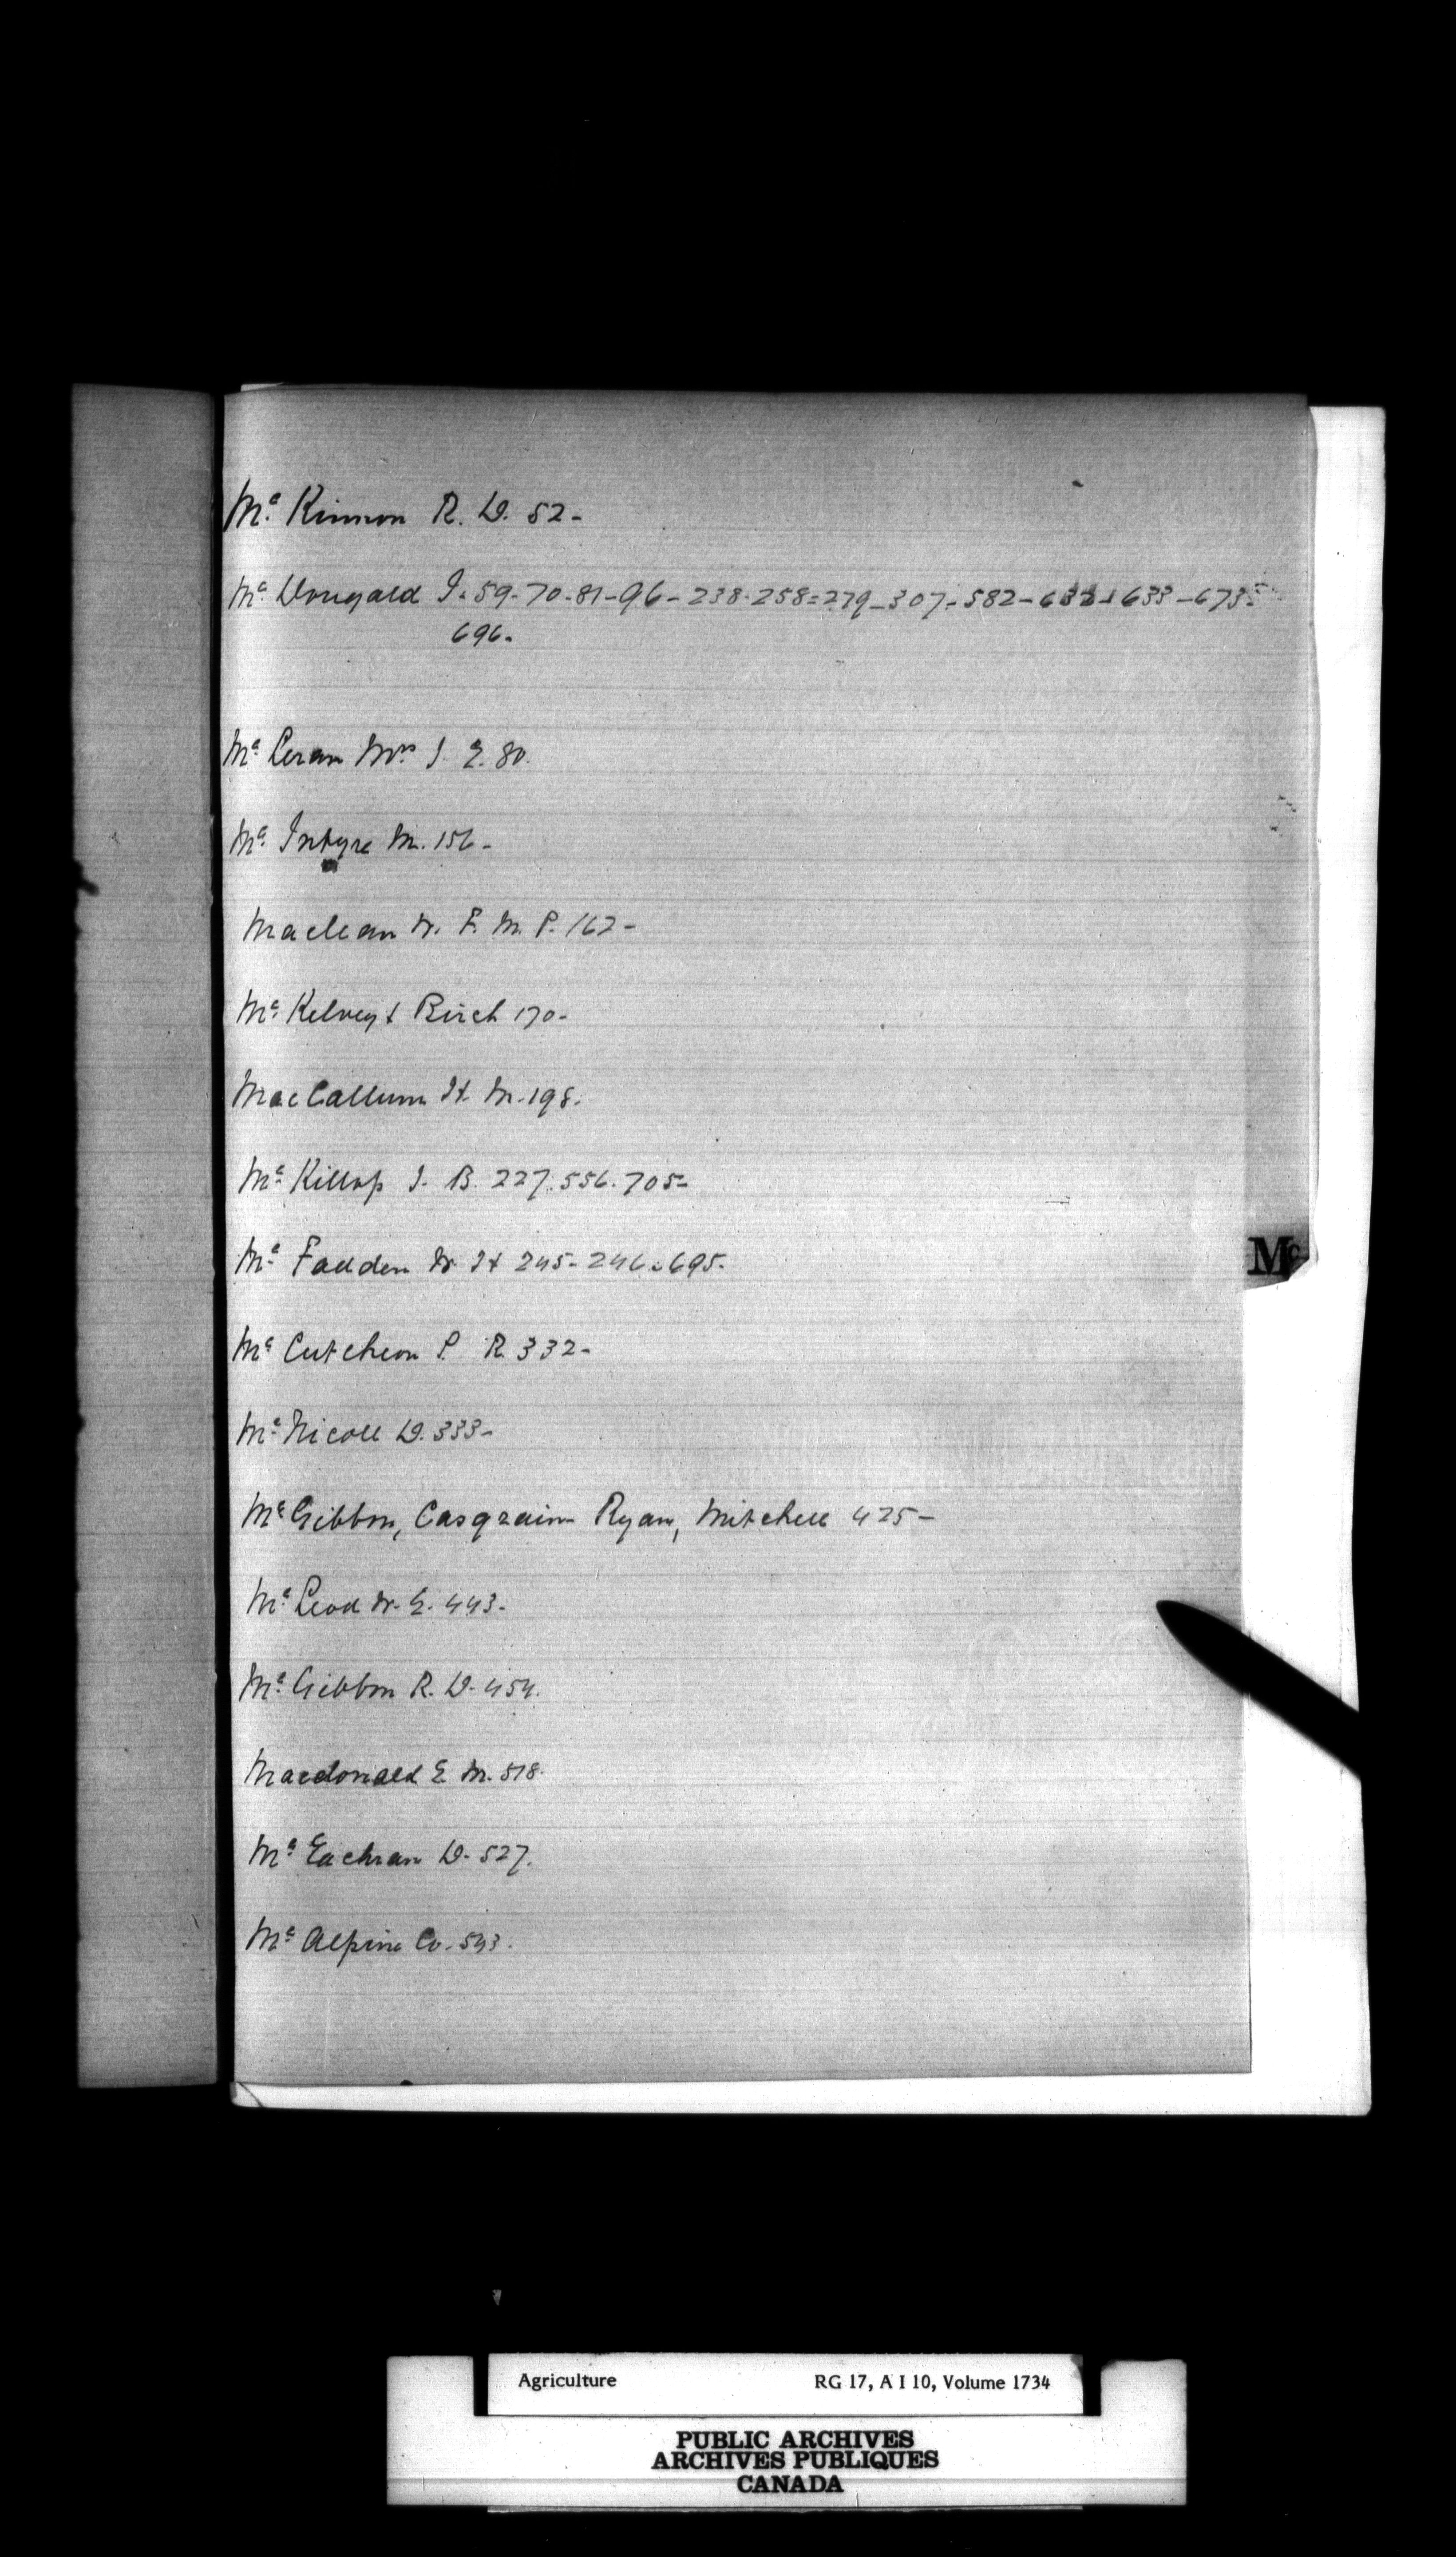 Mc Kinnon R. D. 52-
Mc Dougald J. 59-70-81-96-238-258=279-307-582-632-633-673-
696.
Mc Leran Mrs J. E. 80.
Mc Intyre M. 156-
Maclean W. F. M. P. 162-
Mc Kelvey & Birch 170-
MacCallum H. M. 198.
Mc Killop J. B. 227.556.705-
Mc Fadden W. H 245-246-695-
Mc
Mc Cutcheon P. R. 332-
Mc Nicoll D. 333-
Mc Gibbon, Casgrain Ryan, Mitchell 425-
Mc Leod W. E. 443.
Mc Gibbon R. D. 454.
Macdonald E. M. 518.
Mc Eachran D. 527.
Mc Alpine Co. 543.
Agriculture RG 17, A I 10, Volume 1734
PUBLIC ARCHIVES
ARCHIVES PUBLIQUES
CANADA